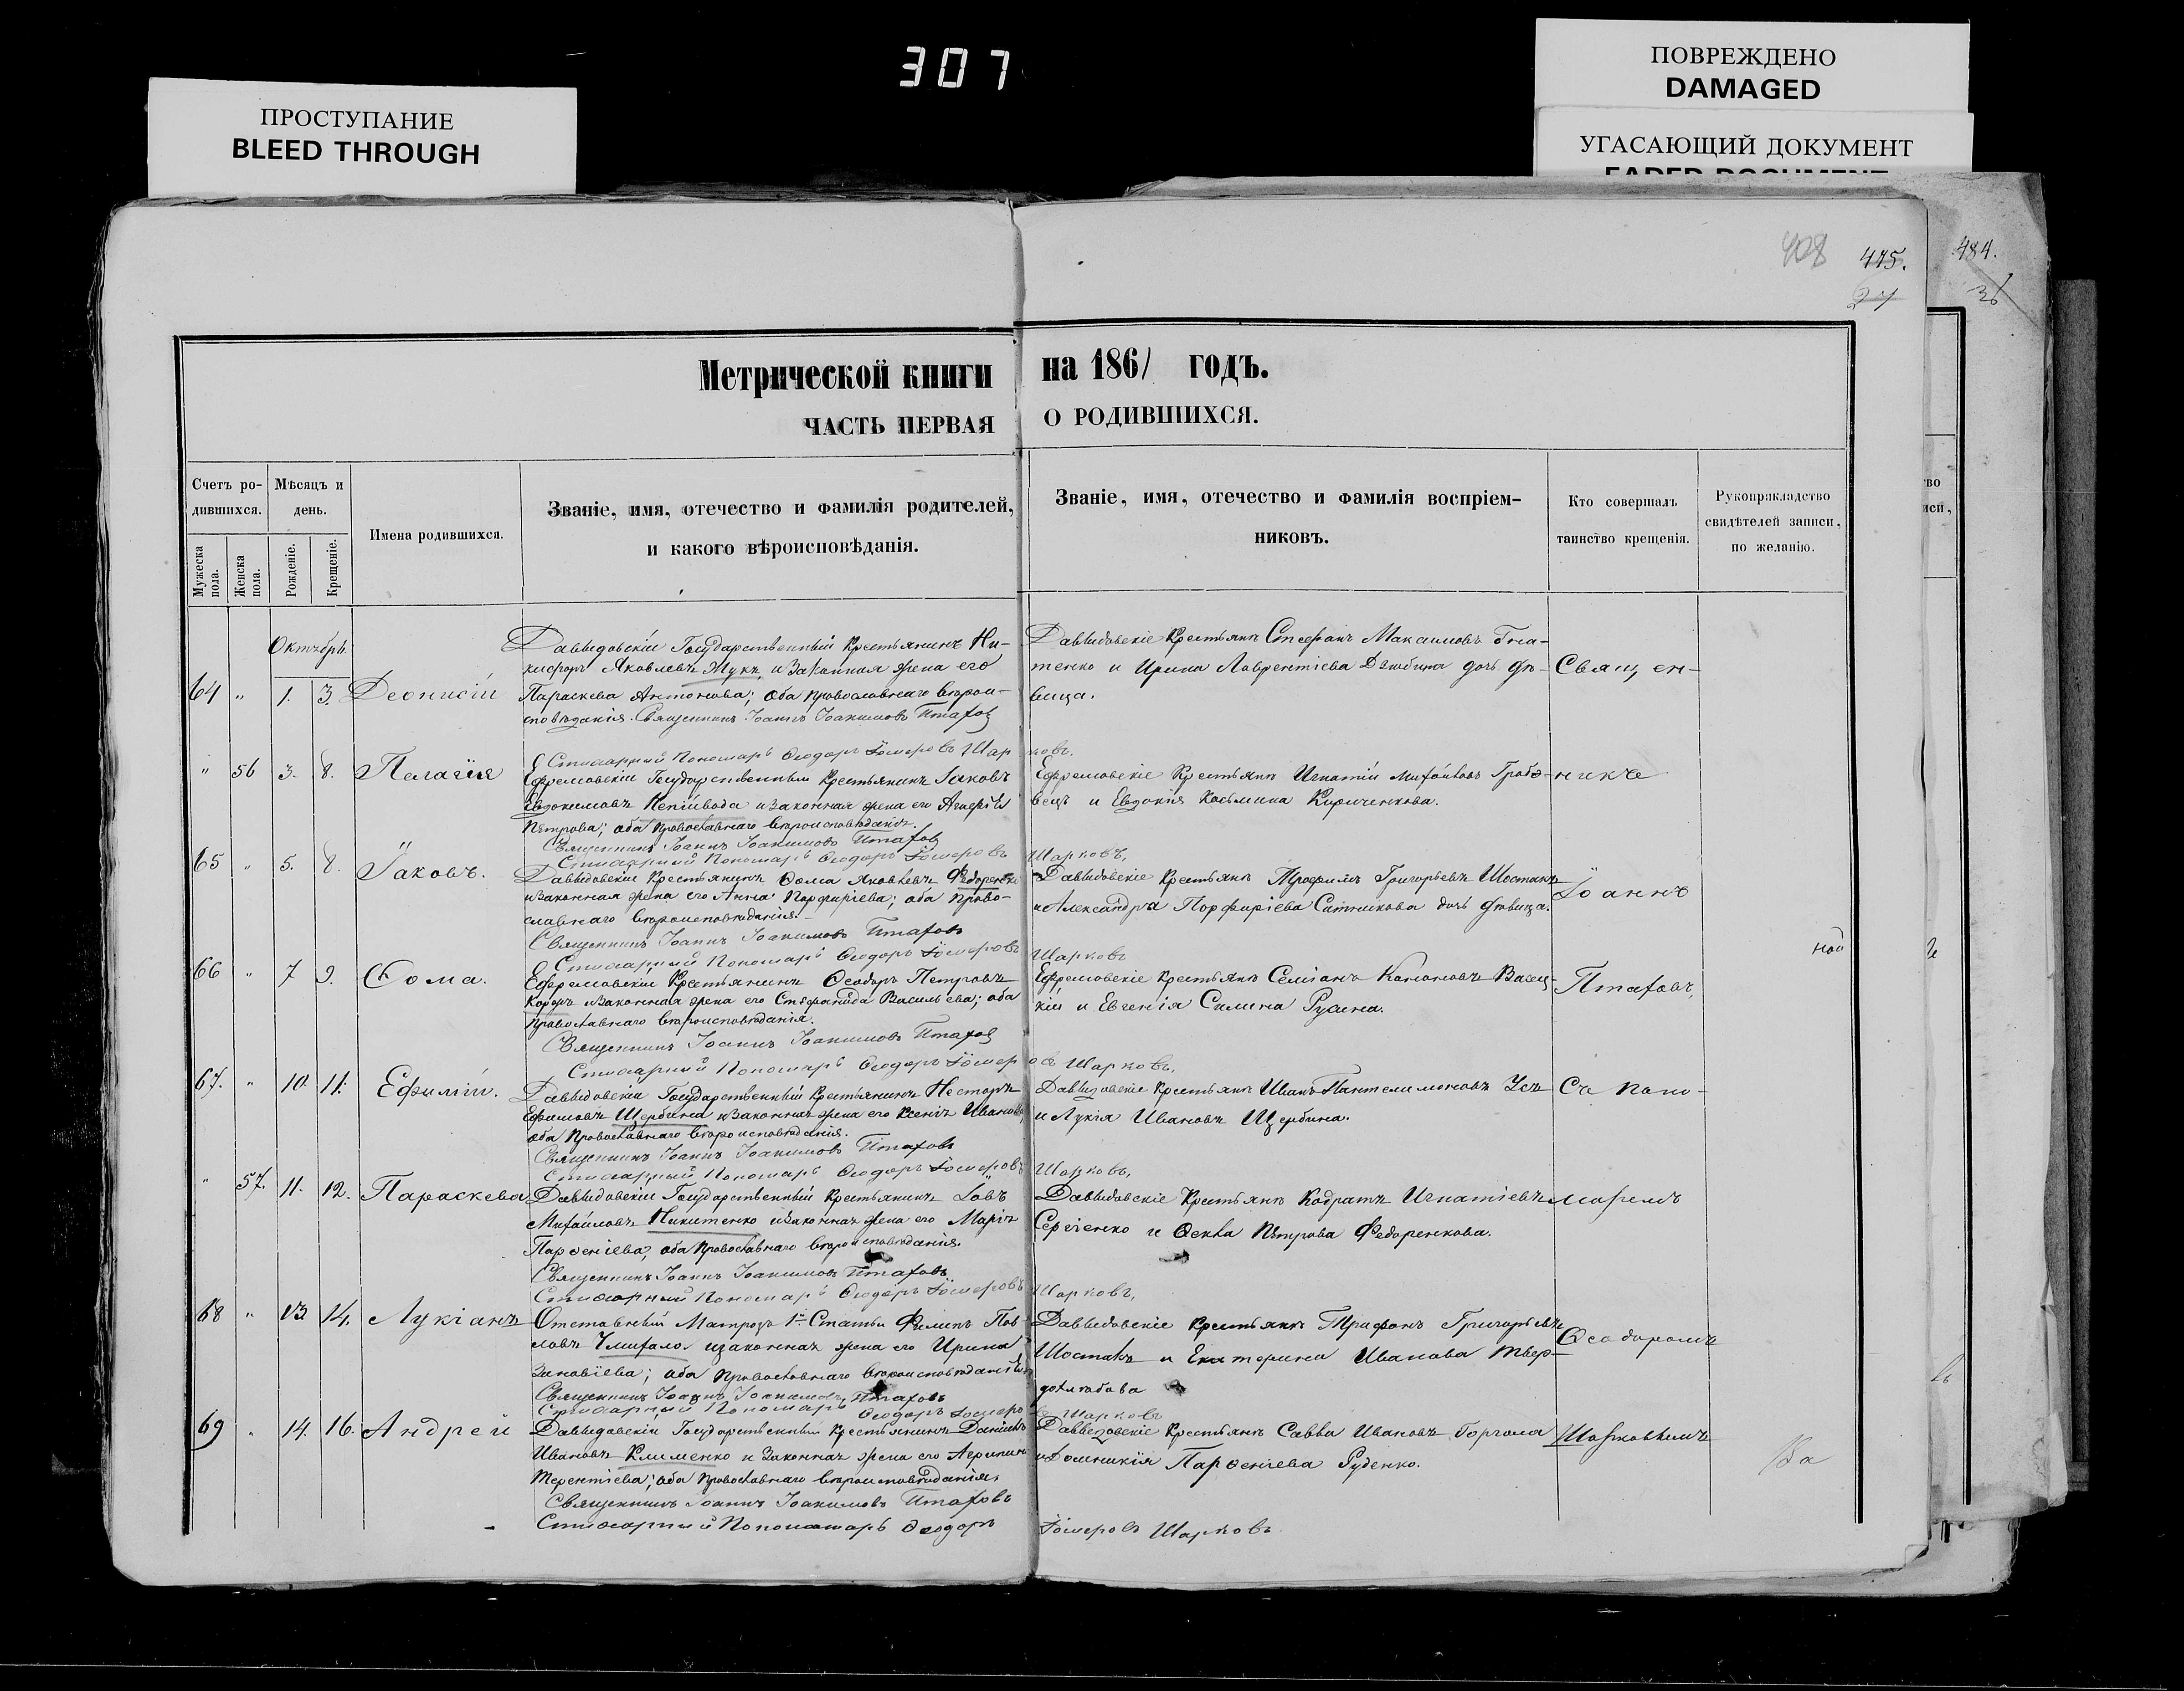 307
ПРОСТУПАНИЕ
BLEED THROUGH
ПОВРЕЖДЕНО
DAMAGED
УГАСАЮЩИЙ ДОКУМЕНТ
FADED DOCUMENT
408
415.
27
484.
Метрической книги на 1861 годъ.
ЧАСТЬ ПЕРВАЯ О РОДИВШИХСЯ.
Счетъ ро-
дившихся.
Мѣсяцъ и
день.
Мужеска
пола.
Женска
пола.
Рожденіе.
Крещеніе.
Имена родившихся.
Званіе, имя, отечество и фамилія родителей,
и какого вѣроисповѣданія.
Званіе, имя, отечество и фамилія воспріем-
никовъ.
Кто совершалъ
таинство крещенія.
Рукоприкладство
свидѣтелей записи,
по желанію.
Октября
64 " 1. 3. Деонисій
Давыдовскій Государственный Крестьянинъ Ни-
кифоръ Яковлевъ Жукъ, и Законная жена его
Параскева Антонова; оба православнаго вѣрои-
сповѣданія. Священникъ Іоаннъ Іоакимовъ Птахов
Давыдовскіе Крестьяне Стефанъ Максимовъ Гна-
тенко и Ирина Лаврентіева дочь дѣ-
вица.
Священ-
Стихарный Пономарь Ѳеодоръ Шарковъ.
" 56 3. 8. Пелагія
Ефремовскій Государственный Крестьянинъ Іаковъ
Евдокимовъ и законная жена его
Петрова; оба православнаго вѣроисповѣданія.
Священникъ Іоаннъ Іоакимовъ Птахов
Стихарный Пономарь Ѳеодоръ Шарковъ,
Ефремовскіе Крестьяне Игнатій
вецъ и Евдокія Косьмина Кириченкова.
никъ
65 " 5. 8. Іаковъ.
Давыдовскій Крестьянинъ Ѳома Яковлевъ Федоренко
и законная жена его Анна Порфиріева; оба право-
славнаго вѣроисповѣданія.
Священникъ Іоаннъ Іоакимовъ Птаховъ
Стихарный Пономарь Ѳеодоръ Шарковъ
Давыдовскіе Крестьяне Трофимъ Григорьевъ Шостакъ
и Александра Порфиріева Ситникова дочь дѣвица.
Іоаннъ
66 " 7 9. Ѳома.
Ефремовскій Крестьянинъ Ѳеодоръ Петровъ
и законная жена его Стефанида Васильева; оба
православнаго вѣроисповѣданія.
Священникъ Іоаннъ Іоакимовъ Птахов
Стихарный Пономарь Ѳеодоръ Шарковъ,
Ефремовскіе Крестьяне
кій и Евгенія Силина Русина.
Птаховъ,
67. " 10. 11. Ефимій.
Давыдовскій Государственный Крестьянинъ Несторъ
Ефимовъ Щербина и законная жена его Ксенія Иванова,
оба православнаго вѣроисповѣданія.
Священникъ Іоаннъ Іоакимовъ Птаховъ
Стихарный Пономарь Ѳеодоръ Шарковъ,
Давыдовскіе Крестьяне Иванъ Пантелимоновъ Усъ
и Лукія Иванова Щербина.
Съ поно-
" 57. 11. 12. Параскева
Давыдовскій Государственный Крестьянинъ
Михайловъ Никитенко и законная жена его Марія
Парѳеніева, оба православнаго вѣроисповѣданія.
Священникъ Іоаннъ Іоакимовъ Птаховъ
Стихарный Пономарь Ѳеодоръ Шарковъ,
Давыдовскіе Крестьяне Кодратъ Игнатіевъ
Сергіенко и Ѳекла Петрова Федоренкова.
маремъ
68 " 13 14. Лукіанъ
Отставный Матрозъ 1й Статьи Филипъ Пав-
ловъ и законная жена его Ирина
Зиновіева; оба православнаго вѣроисповѣданія
Священникъ Іоаннъ Іоакимовъ Птаховъ
Стихарный Пономарь Ѳеодоръ Шарковъ
Давыдовскіе Крестьяне Трифонъ Григорьевъ
Шостакъ и Екатерина Иванова Твер-
дохлѣбова
Ѳеодоромъ
69 " 14. 16. Андрей
Давыдовскій Государственный Крестьянинъ Даніилъ
Ивановъ Клименко и Законная жена его Агрипина
Терентіева; оба православнаго вѣроисповѣданія.
Священникъ Іоаннъ Іоакимовъ Птаховъ
Стихарный Пономарь Ѳеодоръ Шарковъ
Давыдовскіе Крестьяне Савва Ивановъ Горгола
и Домникія Парѳеніева Руденко.
Шарковымъ